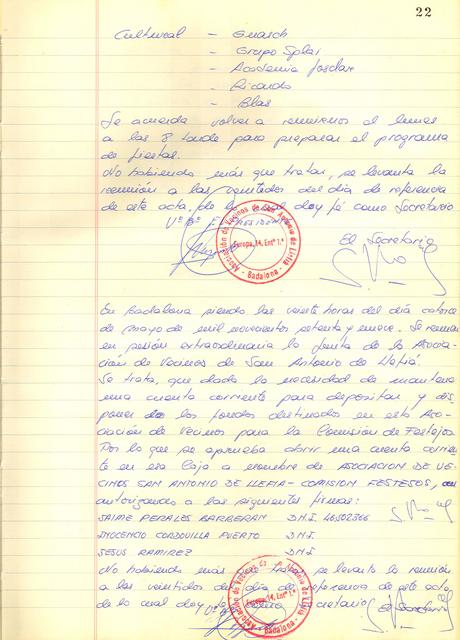 22
Cultural - Guasch
- Grupo Splai
- Academia Josclar
- Ricardo
- Blas
Se acuerda volver a reunirnos el lunes
a las 8 tarde para preparar el programa
de fiestas.
No habiendo más que tratar, se levanta la
reunión a las veintidos del día de referencia
de este acta, de lo cual doy fé como Secretario
Vº Bº EL PRESIDENTE
Asociación de Vecinos de San Antonio de Llefiá
Europa, 14, Entº 1.ª
- Badalona -
El Secretario
En Badalona siendo las veinte horas del día catorce
de mayo de mil novecientos setenta y nueve. Se reune
en sesión extraordinaria la Junta de la Asocia-
ción de Vecinos de San Antonio de Llefiá.
Se trata, que dado la necesidad de mantener
una cuenta corriente para depositar y dis-
poner de los fondos destinados en esta Aso-
ciación de Vecinos para la Comisión de Festejos
Por lo que se aprueba abrir una cuenta corrien-
te en esa Caja a nombre de ASOCIACION DE VE-
CINOS SAN ANTONIO DE LLEFIA - COMISION FESTEJOS,
autorizandos a las siguientes firmas:
JAIME PERALES BARBERAN D.N.I. 46502366
INOCENCIO CORDOVILLA PUERTO D.N.I.
JESUS RAMIREZ D.N.I
No habiendo más que tratar se levanta la reunión
a las veintidos del día de referencia de este acta
de lo cual doy fé como Secretario
Vº Bº
El Secretario
Asociación de Vecinos de San Antonio de Llefiá
Europa, 14, Entº 1.ª
- Badalona -